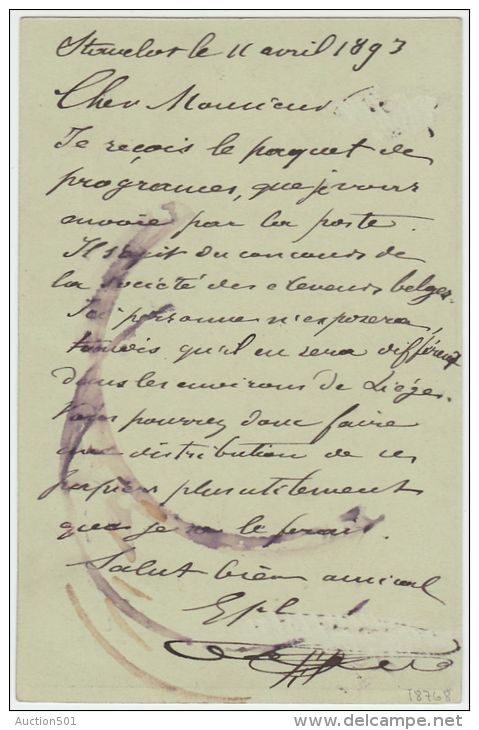 Stavelot le 11 avril 1893
Cher Monsieur
Je reçois le paquet de
programes, que je vous
envoie par la poste.
Il s'agit du concours de
la Société des eleveurs belges.
Ici personne n'exposera,
tandis qu'il en sera différent
dans les environs de Liége.
Vous pourrez donc faire
la distribution de ces
papiers plus utilement
que je ne le ferais.
Salut bien amical
18768
Auction501
www.delcampe.net